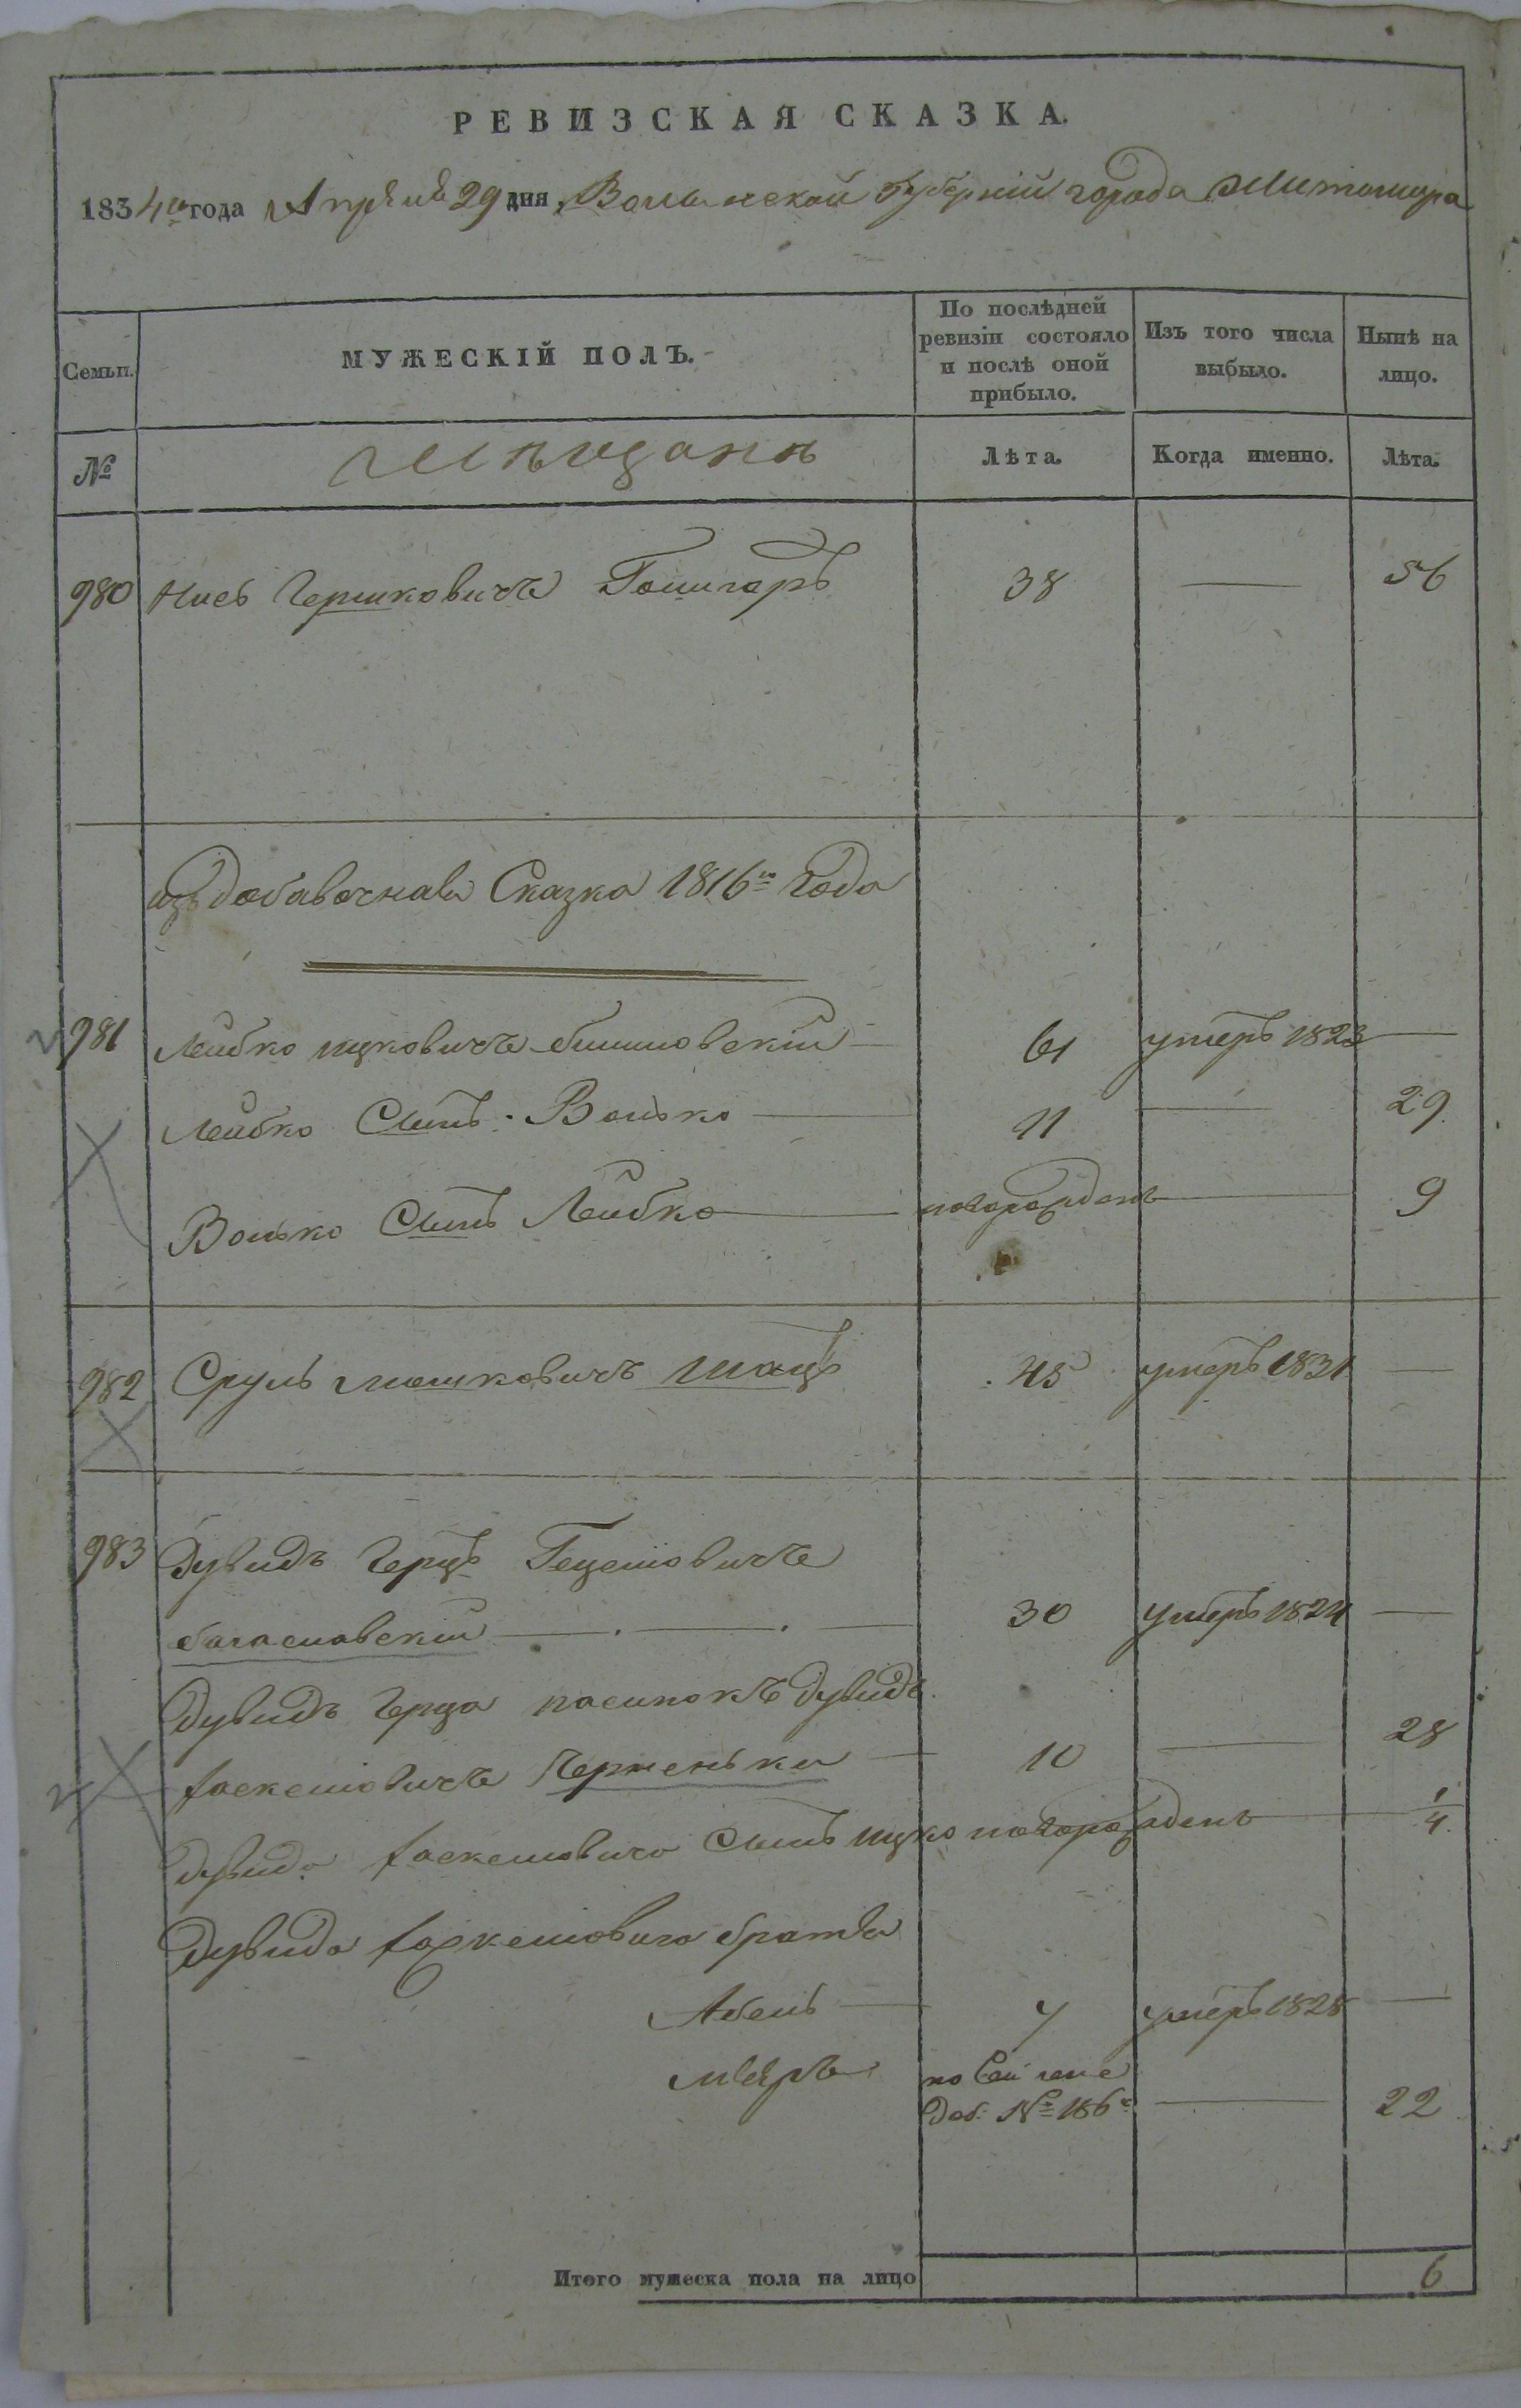 РЕВИЗСКАЯ СКАЗКА.
1834го года Апреля 29 дня, Волынской Губерніи города Житомира
Семьи.
МУЖЕСКІЙ ПОЛЪ.
По послѣдней ревизіи состояло и послѣ оной прибыло.
Изъ того числа выбыло.
Нынѣ на лицо.
№
Мѣщане
Лѣта.
Когда именно.
Лѣта.
980 Гершковичъ 38 — 56
добавочная Сказка 1816го Года
981 Лейбко Ицковичъ 61 умеръ 1823 —
Лейбко Сынъ Волько — 11 — 29
Волько Сынъ Лейбко — новорожденъ — 9
982 Сруль Мошковичъ Шацъ 45 умеръ 1831 —
983 Дувидъ Герцъ Гецелювичъ
багаславскій — 30 умеръ 1824 —
Дувидъ Герца пасинокъ Дувидъ
Хаскелювичъ — 10 — 28
Дувида Хаскелювича Сынъ Ицко новорожденъ — 1/4
Дувида Хаскелювича братья
Абель — 7 умеръ 1828 —
Меяръ по
доб. № 186 — 22
Итого мужеска пола на лицо 6